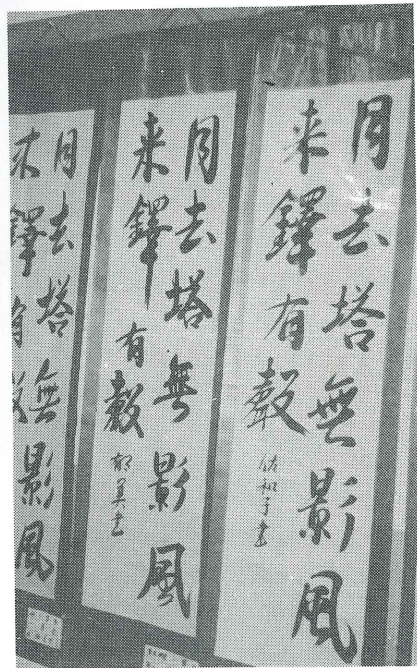 月去塔無影風
来鐸有聲
佐和子書
月去塔無影風
来鐸有聲
郁美書
月去塔無影風
来鐸有聲